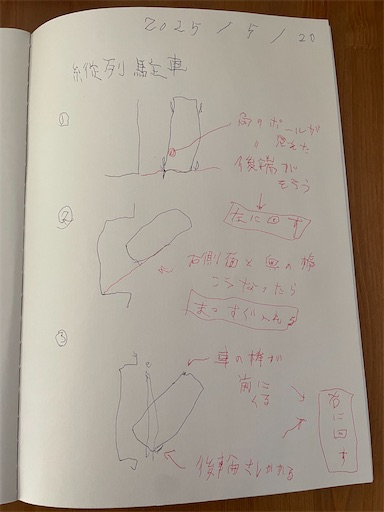 2025/5/20
縦列駐車
①
角のポールが
見えた
後端が
そろう
左に回す
②
右側面と奥の棒
こうなったら
まっすぐ入れる
③
車の棒が
前に
くる
右に回す
後車輪さしかかる